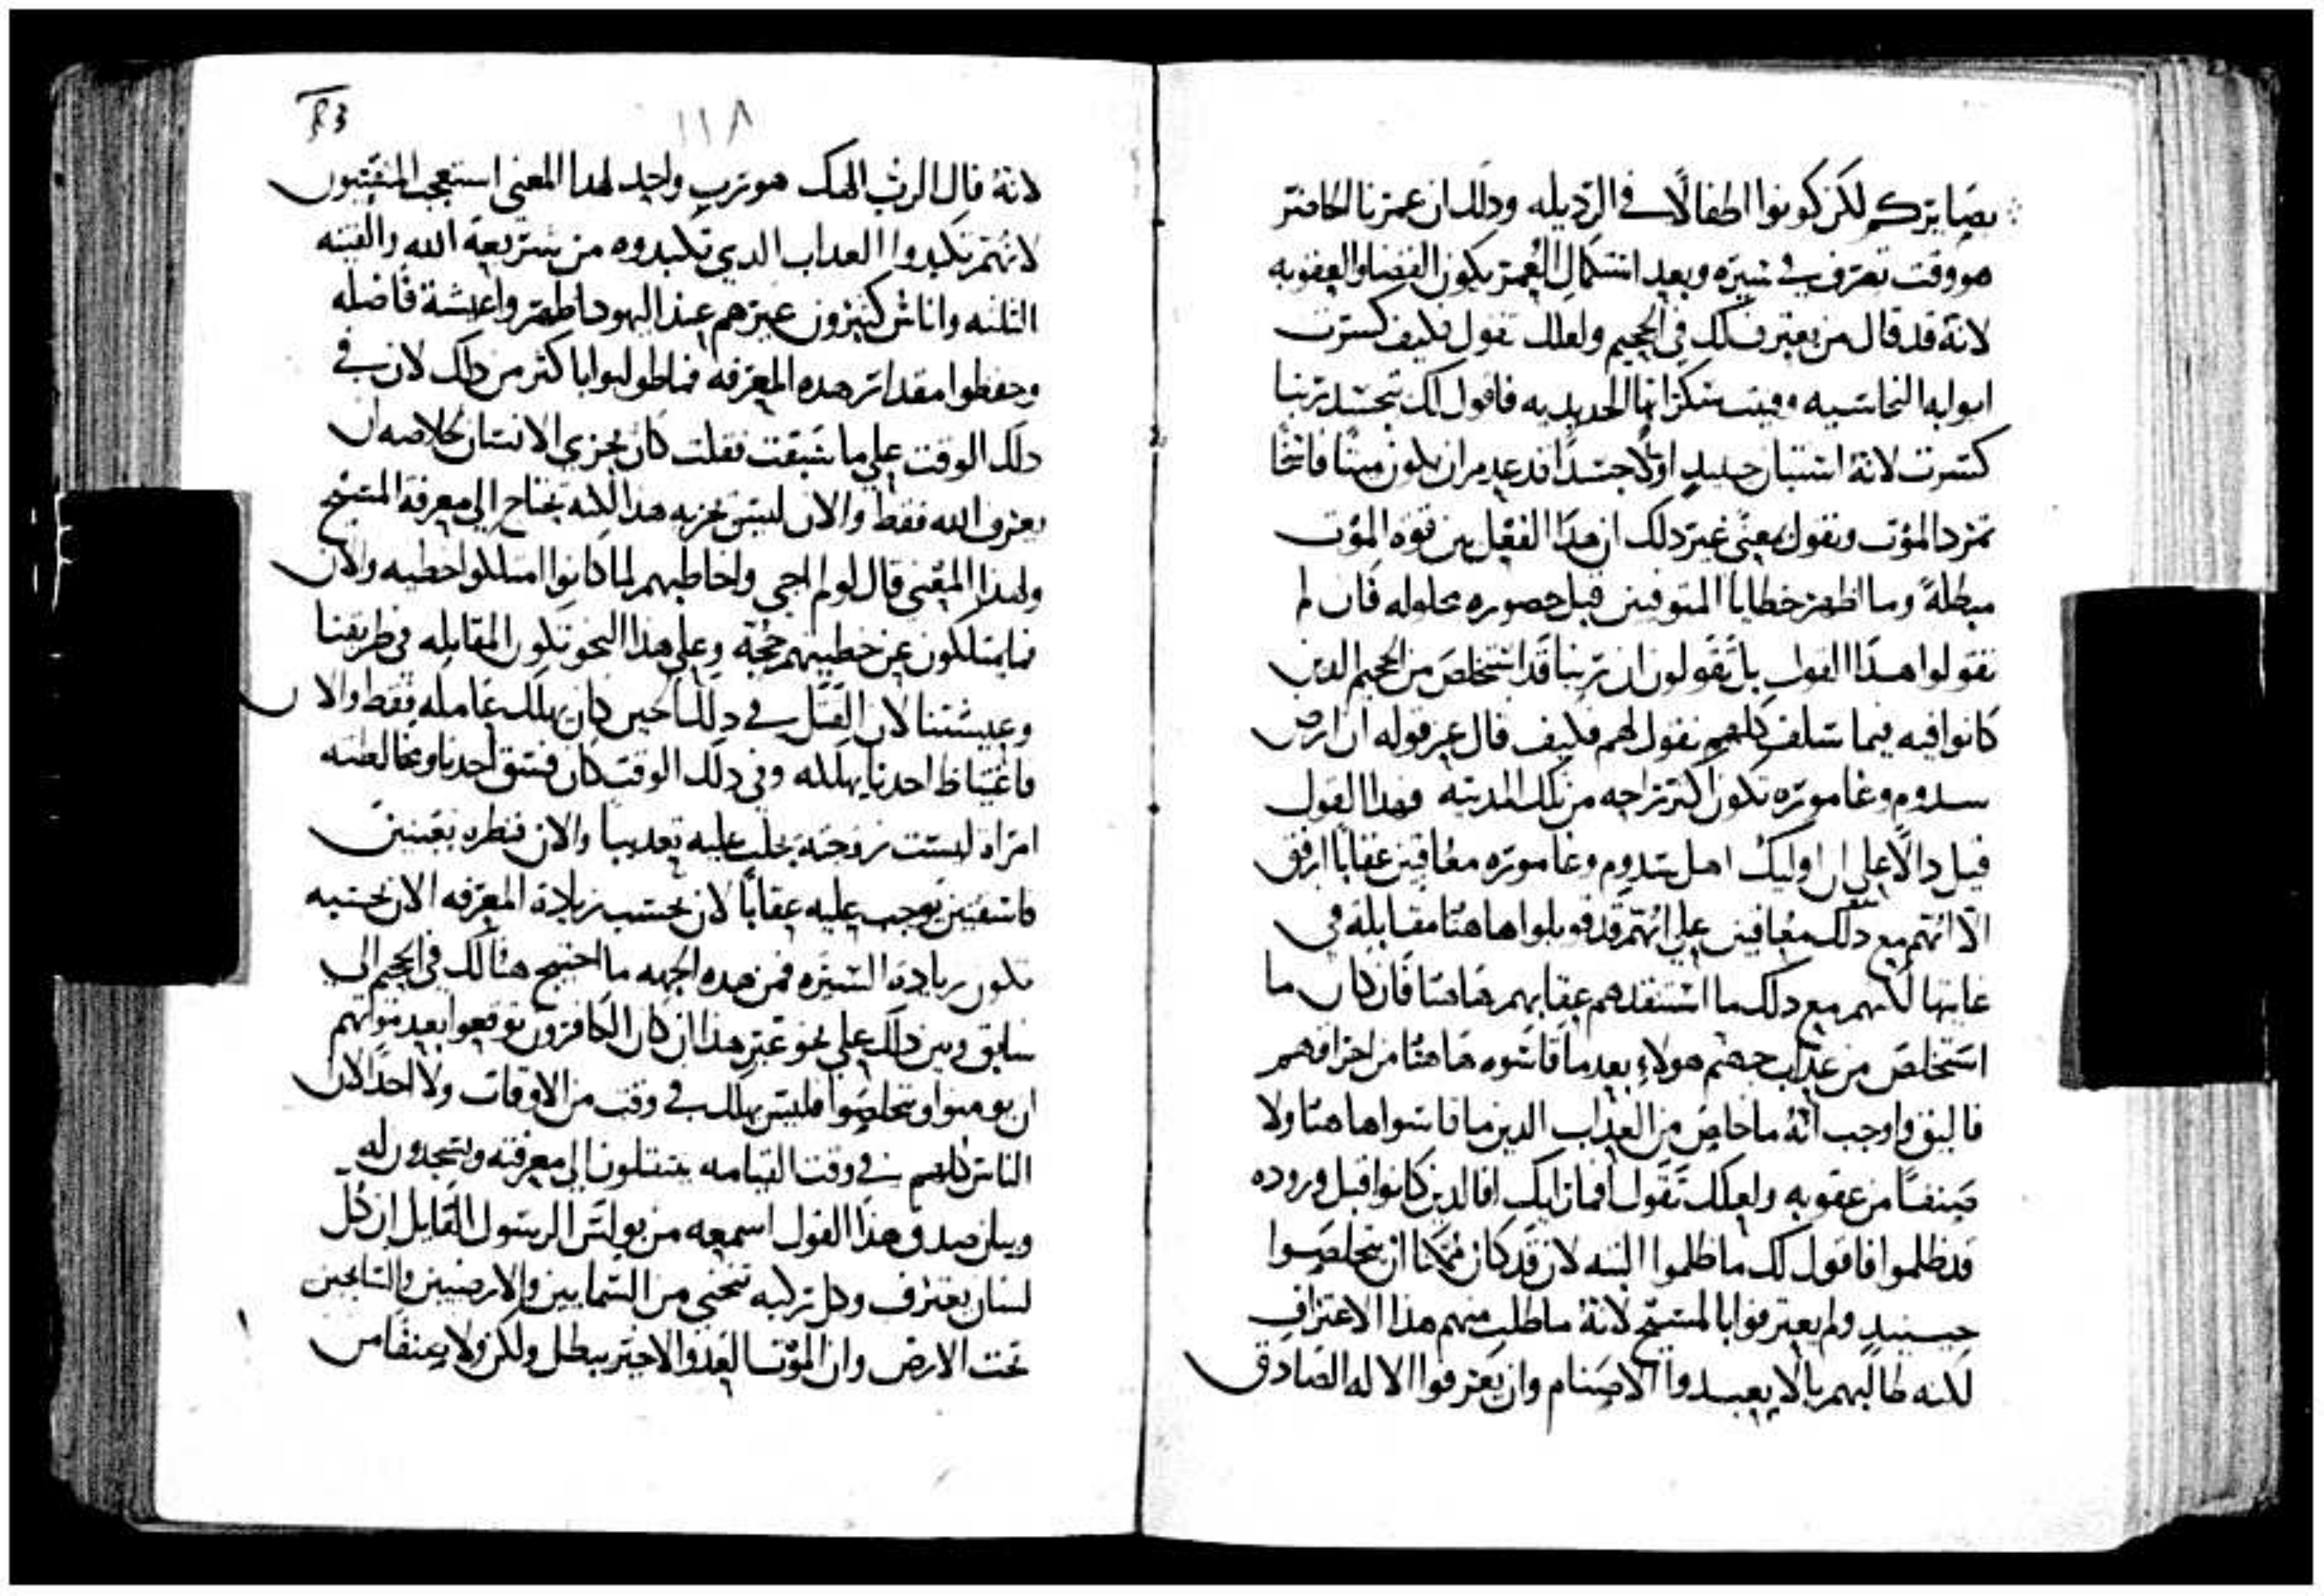 بصايركم لكن كونوا اطفالًا في الرديله ودلك ان عمرنا الحاضر
هو وقت تصرف في سيره وبعد استكمال العمر يكون القضا والعقوبه
لانهُ قد قال من يعترف لك في الجحيم ولعلك تقول فكيف كسرت
ابوابه النحاسيه وفيت سكراتها الحديديه فاقول لك بجسد ربنا
كسرت لانهُ استبان حينيدٍ اولًا جسدًا قد عدم ان يكون ميتًا فاتحًا
تمرد الموت ونقول معني غير دلك ان هدا الفعل بين قوه الموت
مبطلةً وما اظهر خطايا المتوفيين قبل حضوره محلوله فان لم
تقولوا هدا القول بل تقولون ان ربنا قد استخلص من الجحيم الدين
كانوا فيه فيما سلف كلهم نقول لهم فكيف قال عن قوله ان ارض
سدوم وغاموره تكون اكثر راحه من تلك المدينه فهدا القول
قيل دالًا علي ان اوليك اهل سدوم وغاموره معاقبين عقابًا ارفق
الا انهم مع دلك معاقبين علي انهم قد قوبلوا هاهنا مقابلة في
غايتها لكنهم مع دلك ما استنقدهم عقابهم هاهنا فان كان ما
استخلص من عداب جهنم هولاءِ بعد ما قاسوه هاهنا من احراقهم
فاليق واوجب انهُ ما خلص من العداب الدين ما قاسوا هاهنا ولا
صنفًا من عقوبه ولعلك تقول افما زليك افالدين كانوا قبل وروده
قد ظلموا فاقول لك ما ظلموا البته لان قد كان ممكنًا ان يتخلصوا
حينيدٍ ولم يعترفوا بالمسيح لانهُ ما طلب منهم هذا الاعتراف
لكنه طالبهم بالا يعبدوا الاصنام وان يعرفوا الاله الصادق
١١٨
لانهُ قال الرب الهك هو رب واحد لهدا المعني استعجب المفتيون
لانهم تكبدوا العداب الدي تكبدوه من شريعة الله والفتيه
الثلثه واناس كثيرون غيرهم عند اليهود اظهروا عيشة فاضله
وحفظوا مقدار هده المعرفه فما طولبوا باكثر من دلك لان في
دلك الوقت علي ما سبقت فقلت كان يجزي الانسان لخلاصه ان
يعرف الله فقط والان ليس يجزيه هدا لكنه يحتاج الي معرفة المسيح
ولهدا المعني قال لو لم اجي واخاطبهم لما كانوا امتلكوا خطيه والان
فما يمتلكون عن خطيتهم حجة وعلي هدا النحو تكون المقابله في طريقنا
وعيشتنا لان القتل في دلك الحين كان يهلك عامله فقط والان
فاغتياظ احدنا يهلكه وفي دلك الوقت كان فسق احدنا ومخالطته
امراه ليست زوجته يجلب عليه تعديبًا والان فنظره بعينين
فاسقتين يوجب عليه عقابًا لان بحسب زيادة المعرفه الان بحسبه
تكون زيادة السيره فمن هده الجهه ما احتيج هنالك في الجحيم الي
سابق وبين دلك علي نحو غير هذا ان كان الكافرون توقعوا بعد موتهم
ان يومنوا ويتخلصوا فليس يهلك في وقت من الاوقات ولا احد لان
الناس كلهم في وقت القيامه ينتقلون الي معرفته ويسجدون له
وبيان صدق هذا القول اسمعه من بولس الرسول القايل ان كل
لسان يعترف وكل ركبه تنحني من السمايين والارضيين والدين
تحت الارض وان الموت العدو الاخير يبطل ولكن ولا صنفا من